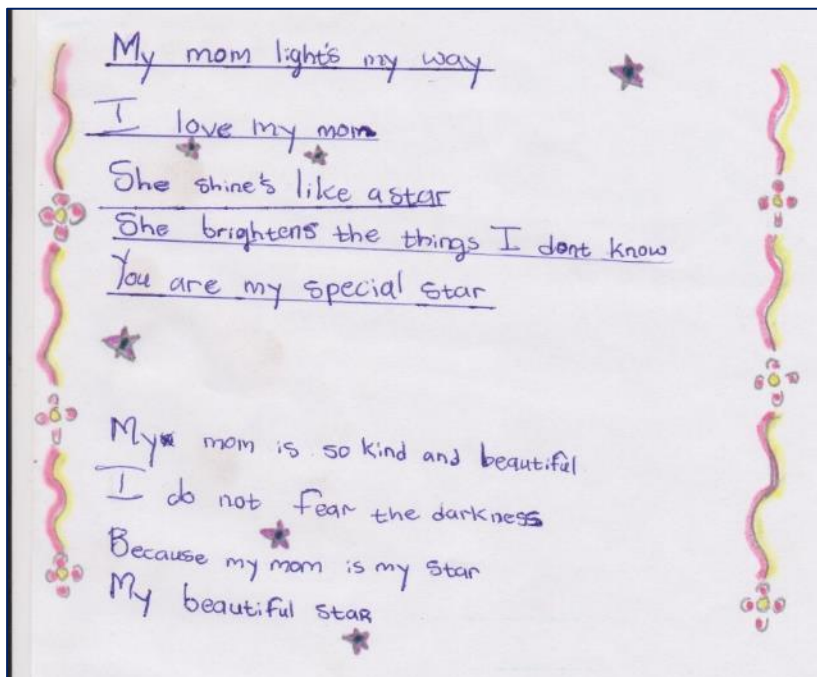 My mom light's my way
I love my mom
She shine's like a star
She brightens the things I dont know
You are my special star
My mom is so kind and beautiful
I do not fear the darkness
Because my mom is my star
My beautiful star